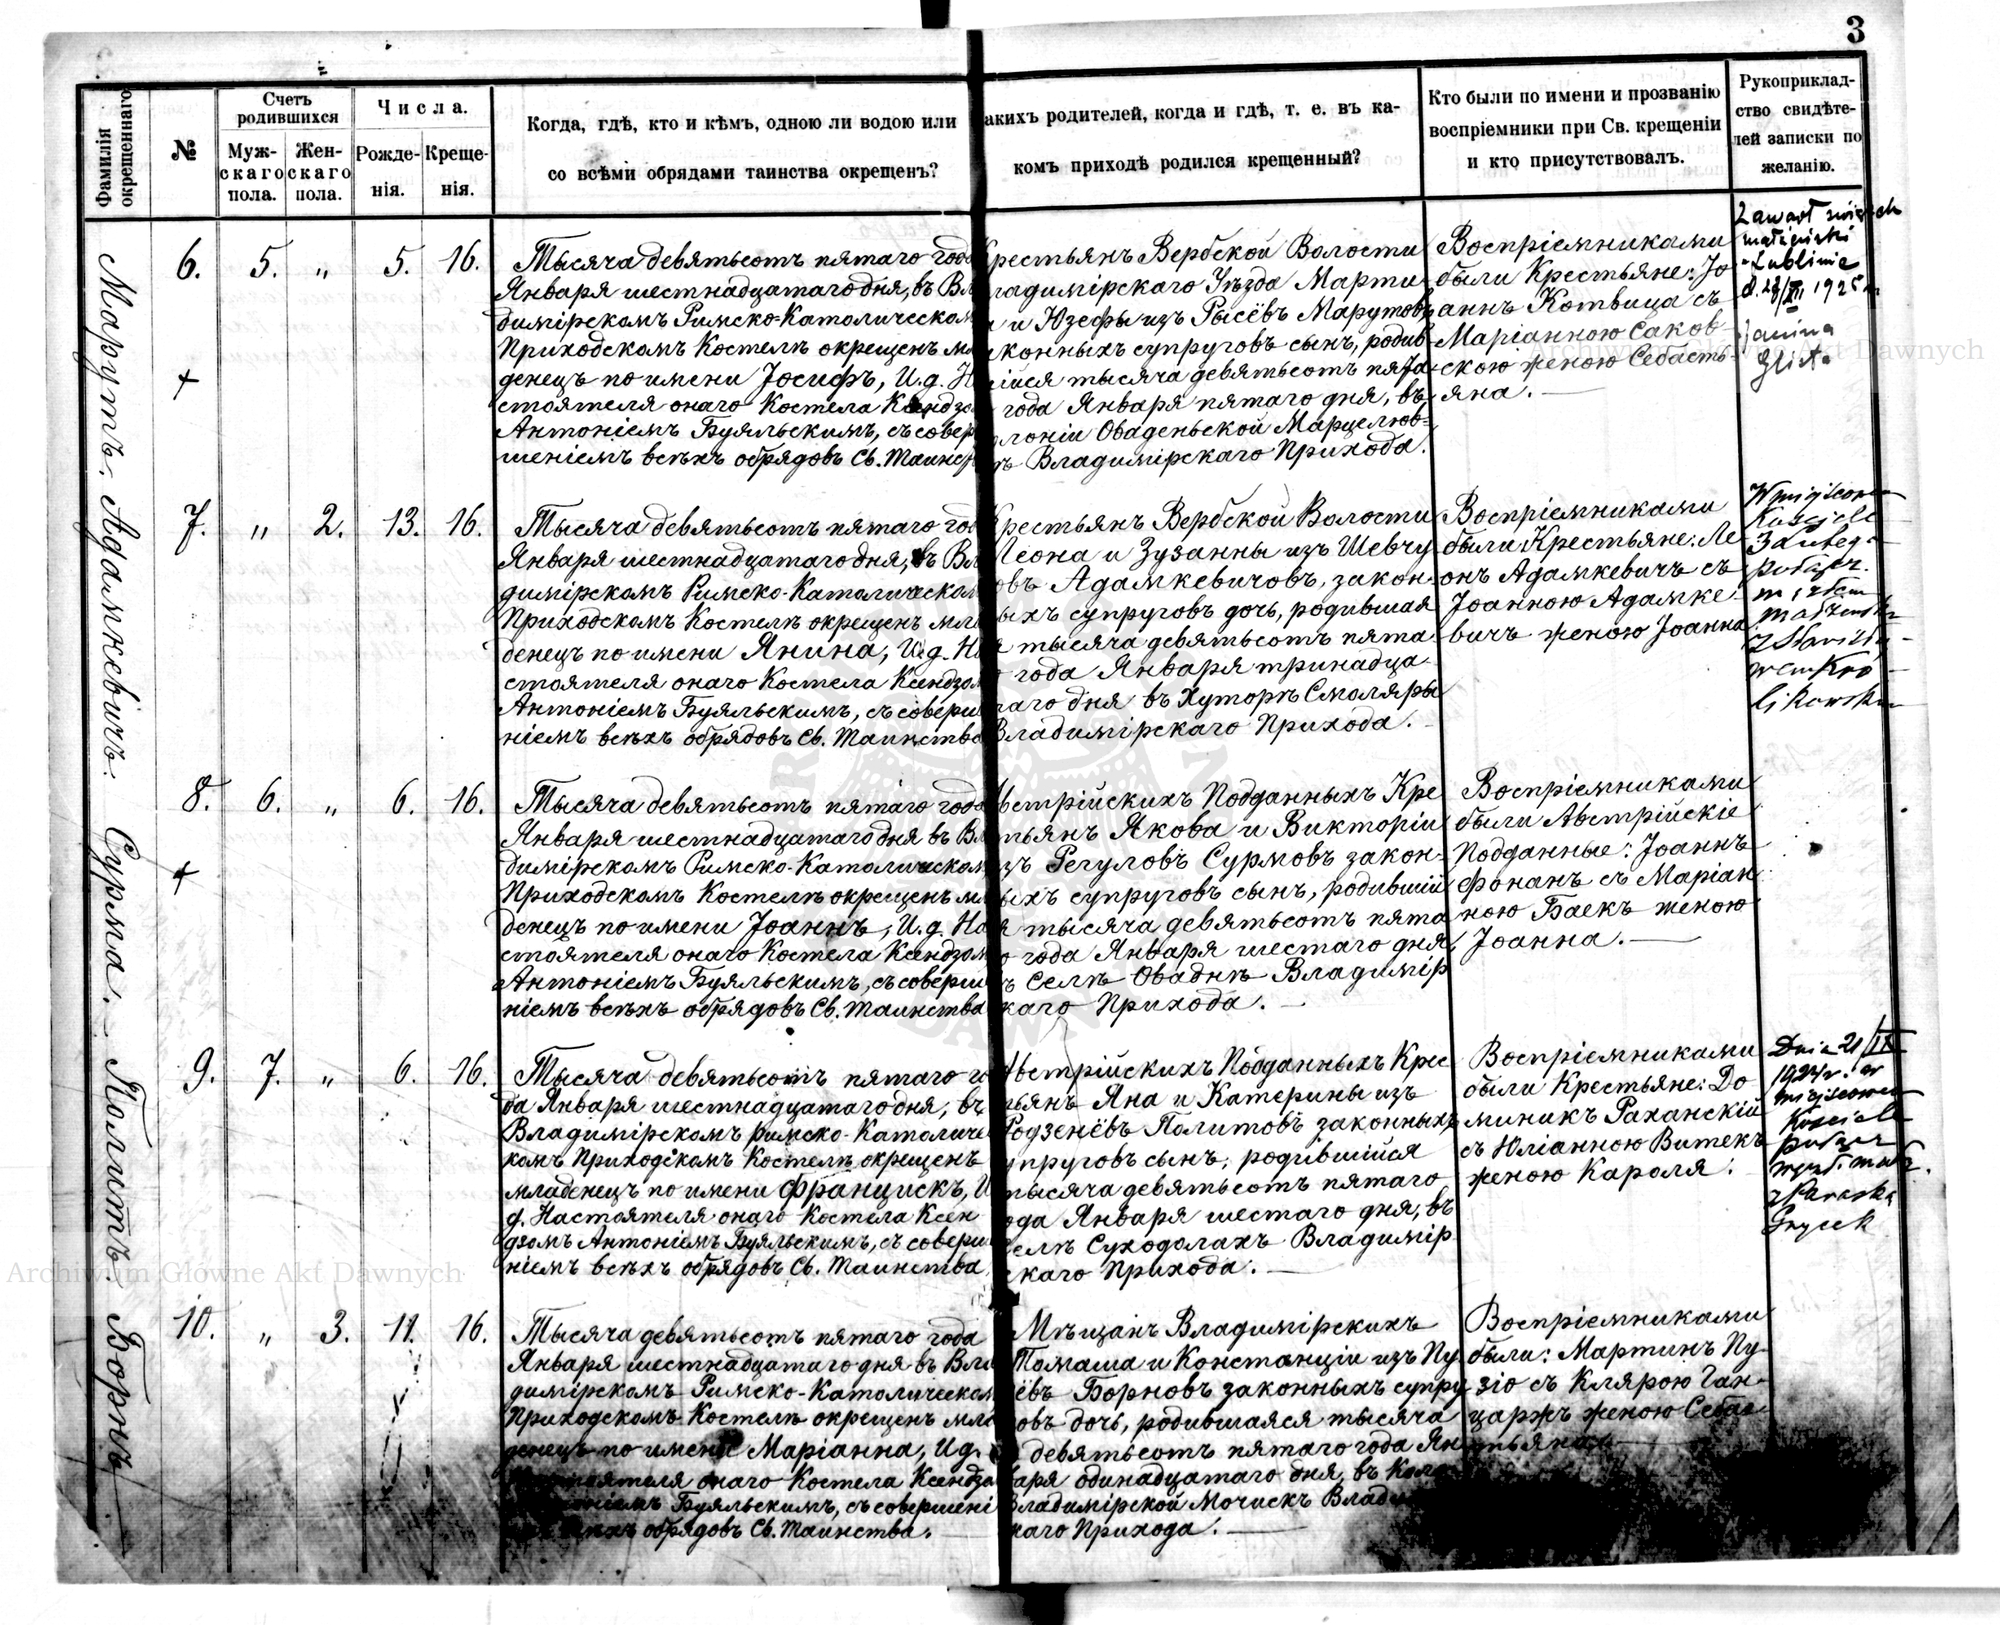 3
Фамилія окрещеннаго
№
Счетъ родившихся
Муж-скаго пола.
Жен-скаго пола.
Числа.
Рожде-нія.
Креще-нія.
Когда, гдѣ, кто и кѣмъ, одною ли водою или
со всѣми обрядами таинства окрещенъ?
акихъ родителей, когда и гдѣ, т. е. въ ка-
комъ приходѣ родился крещенный?
Кто были по имени и прозванію
воспріемники при Св. крещеніи
и кто присутствовалъ.
Рукоприклад-
ство свидѣте-
лей записки по
желанію.
Марутъ.
6. 5. „ 5. 16.
Тысяча девятьсотъ пятаго года
Января шестнадцатаго дня, въ Вла
димірскомъ Римско-Католическом
Приходскомъ Костелѣ окрещенъ мла
денецъ по имени Іосифъ, И. д. На
стоятеля онаго Костела Ксендзо
Антоніемъ Буяльскимъ, съ совер
шеніемъ всѣхъ обрядовъ Св. Таинст
Крестьянъ Вербской Волости
ладимірскаго Уѣзда Марти
и Юзефы изъ Рысёвъ Марутовъ
конныхъ супруговъ сынъ, родив
шійся тысяча девятьсотъ пята
года Января пятаго дня, въ
олоніи Оваденьской Марцелюв-
ѣ Владимірскаго Прихода.
Воспріемниками
были Крестьяне: Іо
аннъ Котвица съ
Маріанною Саков-
скою женою Себасть-
яна.
Zawarł związek
małżeński
w Lublinie
d. 28/XII 1925 r.
Janina
Glista
Адамкевичъ.
7. „ 2. 13. 16.
Тысяча девятьсотъ пятаго год
Января шестнадцатаго дня, въ Вла
димірскомъ Римско-Католическом
Приходскомъ Костелѣ окрещенъ мла
денецъ по имени Янина, И. д. На
стоятеля онаго Костела Ксендзом
Антоніемъ Буяльскимъ, съ соверше
ніемъ всѣхъ обрядовъ Св. Таинства
Крестьянъ Вербской Волости
Леона и Зузанны изъ Шевчу
овъ Адамкевичовъ, закон-
ыхъ супруговъ дочь, родившая
я тысяча девятьсотъ пята
го года Января тринадца-
таго дня въ Хуторѣ Смоляры
Владимірскаго Прихода.
Воспріемниками
были Крестьяне: Ле
онъ Адамкевичъ съ
Іоанною Адамке-
вичъ женою Іоанна
W miejscowym
Kościele
Сурма.
8. 6. „ 6. 16.
Тысяча девятьсотъ пятаго года
Января шестнадцатаго дня въ Вла
димірскомъ Римско-Католическом
Приходскомъ Костелѣ окрещенъ мла
денецъ по имени Іоаннъ, И. д. На
стоятеля онаго Костела Ксендзом
Антоніемъ Буяльскимъ, съ соверше
ніемъ всѣхъ обрядовъ Св. Таинства
Австрійскихъ Подданныхъ Кре
тьянъ Якова и Викторіи
изъ Регуловъ Сурмовъ закон-
ныхъ супруговъ сынъ, родившій
я тысяча девятьсотъ пята
го года Января шестаго дня,
ъ Селѣ Оваднѣ Владимір
скаго Прихода.
Воспріемниками
были Австрійскіе
Подданные: Іоаннъ
Фонанъ съ Маріан
ною Баекъ женою
Іоанна.
Политъ.
9. 7. „ 6. 16.
Тысяча девятьсотъ пятаго го
да Января шестнадцатаго дня, въ
Владимірскомъ Римско-Католичес
комъ Приходскомъ Костелѣ окрещенъ
младенецъ по имени Францискъ, И
д. Настоятеля онаго Костела Ксен
дзомъ Антоніемъ Буяльскимъ, съ соверше
ніемъ всѣхъ обрядовъ Св. Таинства
Австрійскихъ Подданныхъ Крес
тьянъ Яна и Катерины изъ
Родзенёвъ Политовъ законныхъ
супруговъ сынъ, родившійся
тысяча девятьсотъ пятаго
года Января шестаго дня, въ
Селѣ Суходолахъ Владимір
скаго Прихода.
Воспріемниками
были Крестьяне: До
миникъ Раханскій
съ Юліанною Витекъ
женою Кароля.
Dnia 21/II
1927 r. w
miejscowym
Kościele
z Paraską
Hrycek
Борнъ
10. „ 3. 11. 16.
Тысяча девятьсотъ пятаго года
Января шестнадцатаго дня въ Вла
димірскомъ Римско-Католическом
Приходскомъ Костелѣ окрещенъ мла
денецъ по имени Маріанна, И. д.
Настоятеля онаго Костела Ксендзо
Антоніемъ Буяльскимъ, съ совершені
емъ всѣхъ обрядовъ Св. Таинства.
Мѣщанъ Владимірскихъ
Томаша и Констанціи изъ Пу
ёвъ Борновъ законныхъ супру
говъ дочь, родившаяся тысяча
девятьсотъ пятаго года Ян
варя одинадцатаго дня, въ Коло
Владимірской Мочискъ Влади
скаго Прихода.
Воспріемниками
были: Мартинъ Пу-
зіо съ Клярою Ган-
царжъ женою Себас-
тьяна.
Archiwum Główne Akt Dawnych
Archiwum Główne Akt Dawnych